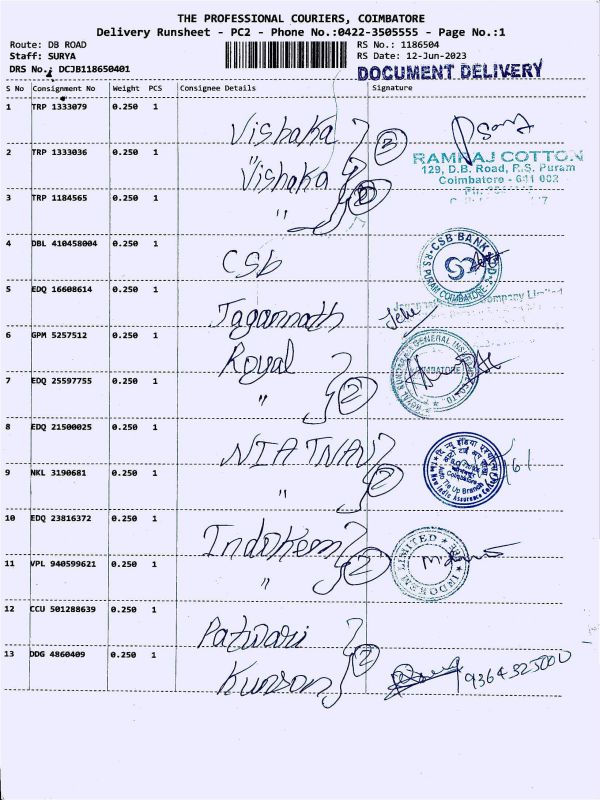 THE PROFESSIONAL COURIERS, COIMBATORE
Delivery Runsheet - PC2 - Phone No.:0422-3505555 - Page No.:1
Route: DB ROAD
RS No.: 1186504
Staff: SURYA
RS Date: 12-Jun-2023
DRS No.: DCJB118650401
DOCUMENT DELIVERY
S No Consignment No Weight PCS Consignee Details Signature
1 TRP 1333079 0.250 1 Vishaka
2 TRP 1333036 0.250 1 Vishaka
RAMRAJ COTTON
129, D.B. Road, R.S. Puram
Coimbatore - 641 002
3 TRP 1184565 0.250 1 "
4 DBL 410458004 0.250 1 CSb
CSB BANK
5 EDQ 16608614 0.250 1 Jagannath
6 GPM 5257512 0.250 1 Royal
7 EDQ 25597755 0.250 1 "
2
8 EDQ 21500025 0.250 1 NIA TNAV
9 NKL 3190681 0.250 1 "
2
10 EDQ 23816372 0.250 1 Indokem
INDOKEM LIMITED
11 VPL 940599621 0.250 1 "
2
12 CCU 501288639 0.250 1 Patwari
13 DDG 4860409 0.250 1 Kunson
2